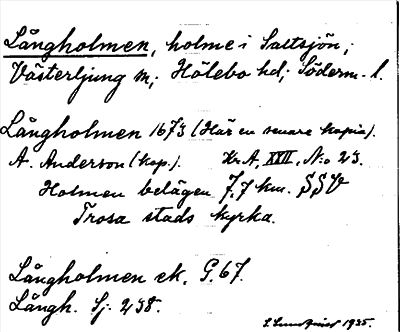 Långholmen, holme i Saltsjön;
Västerljung sn; Hölebo hd; Söderm. l.
Långholmen 1673 (Här en senare kopia).
A. Anderson (kop.). Kr. A, XVII, No 23.
Holmen belägen 7,7 km. SSV
Trosa stads kyrka.
Långholmen ek. G. 67.
Långh. Sj. 238.
1935.